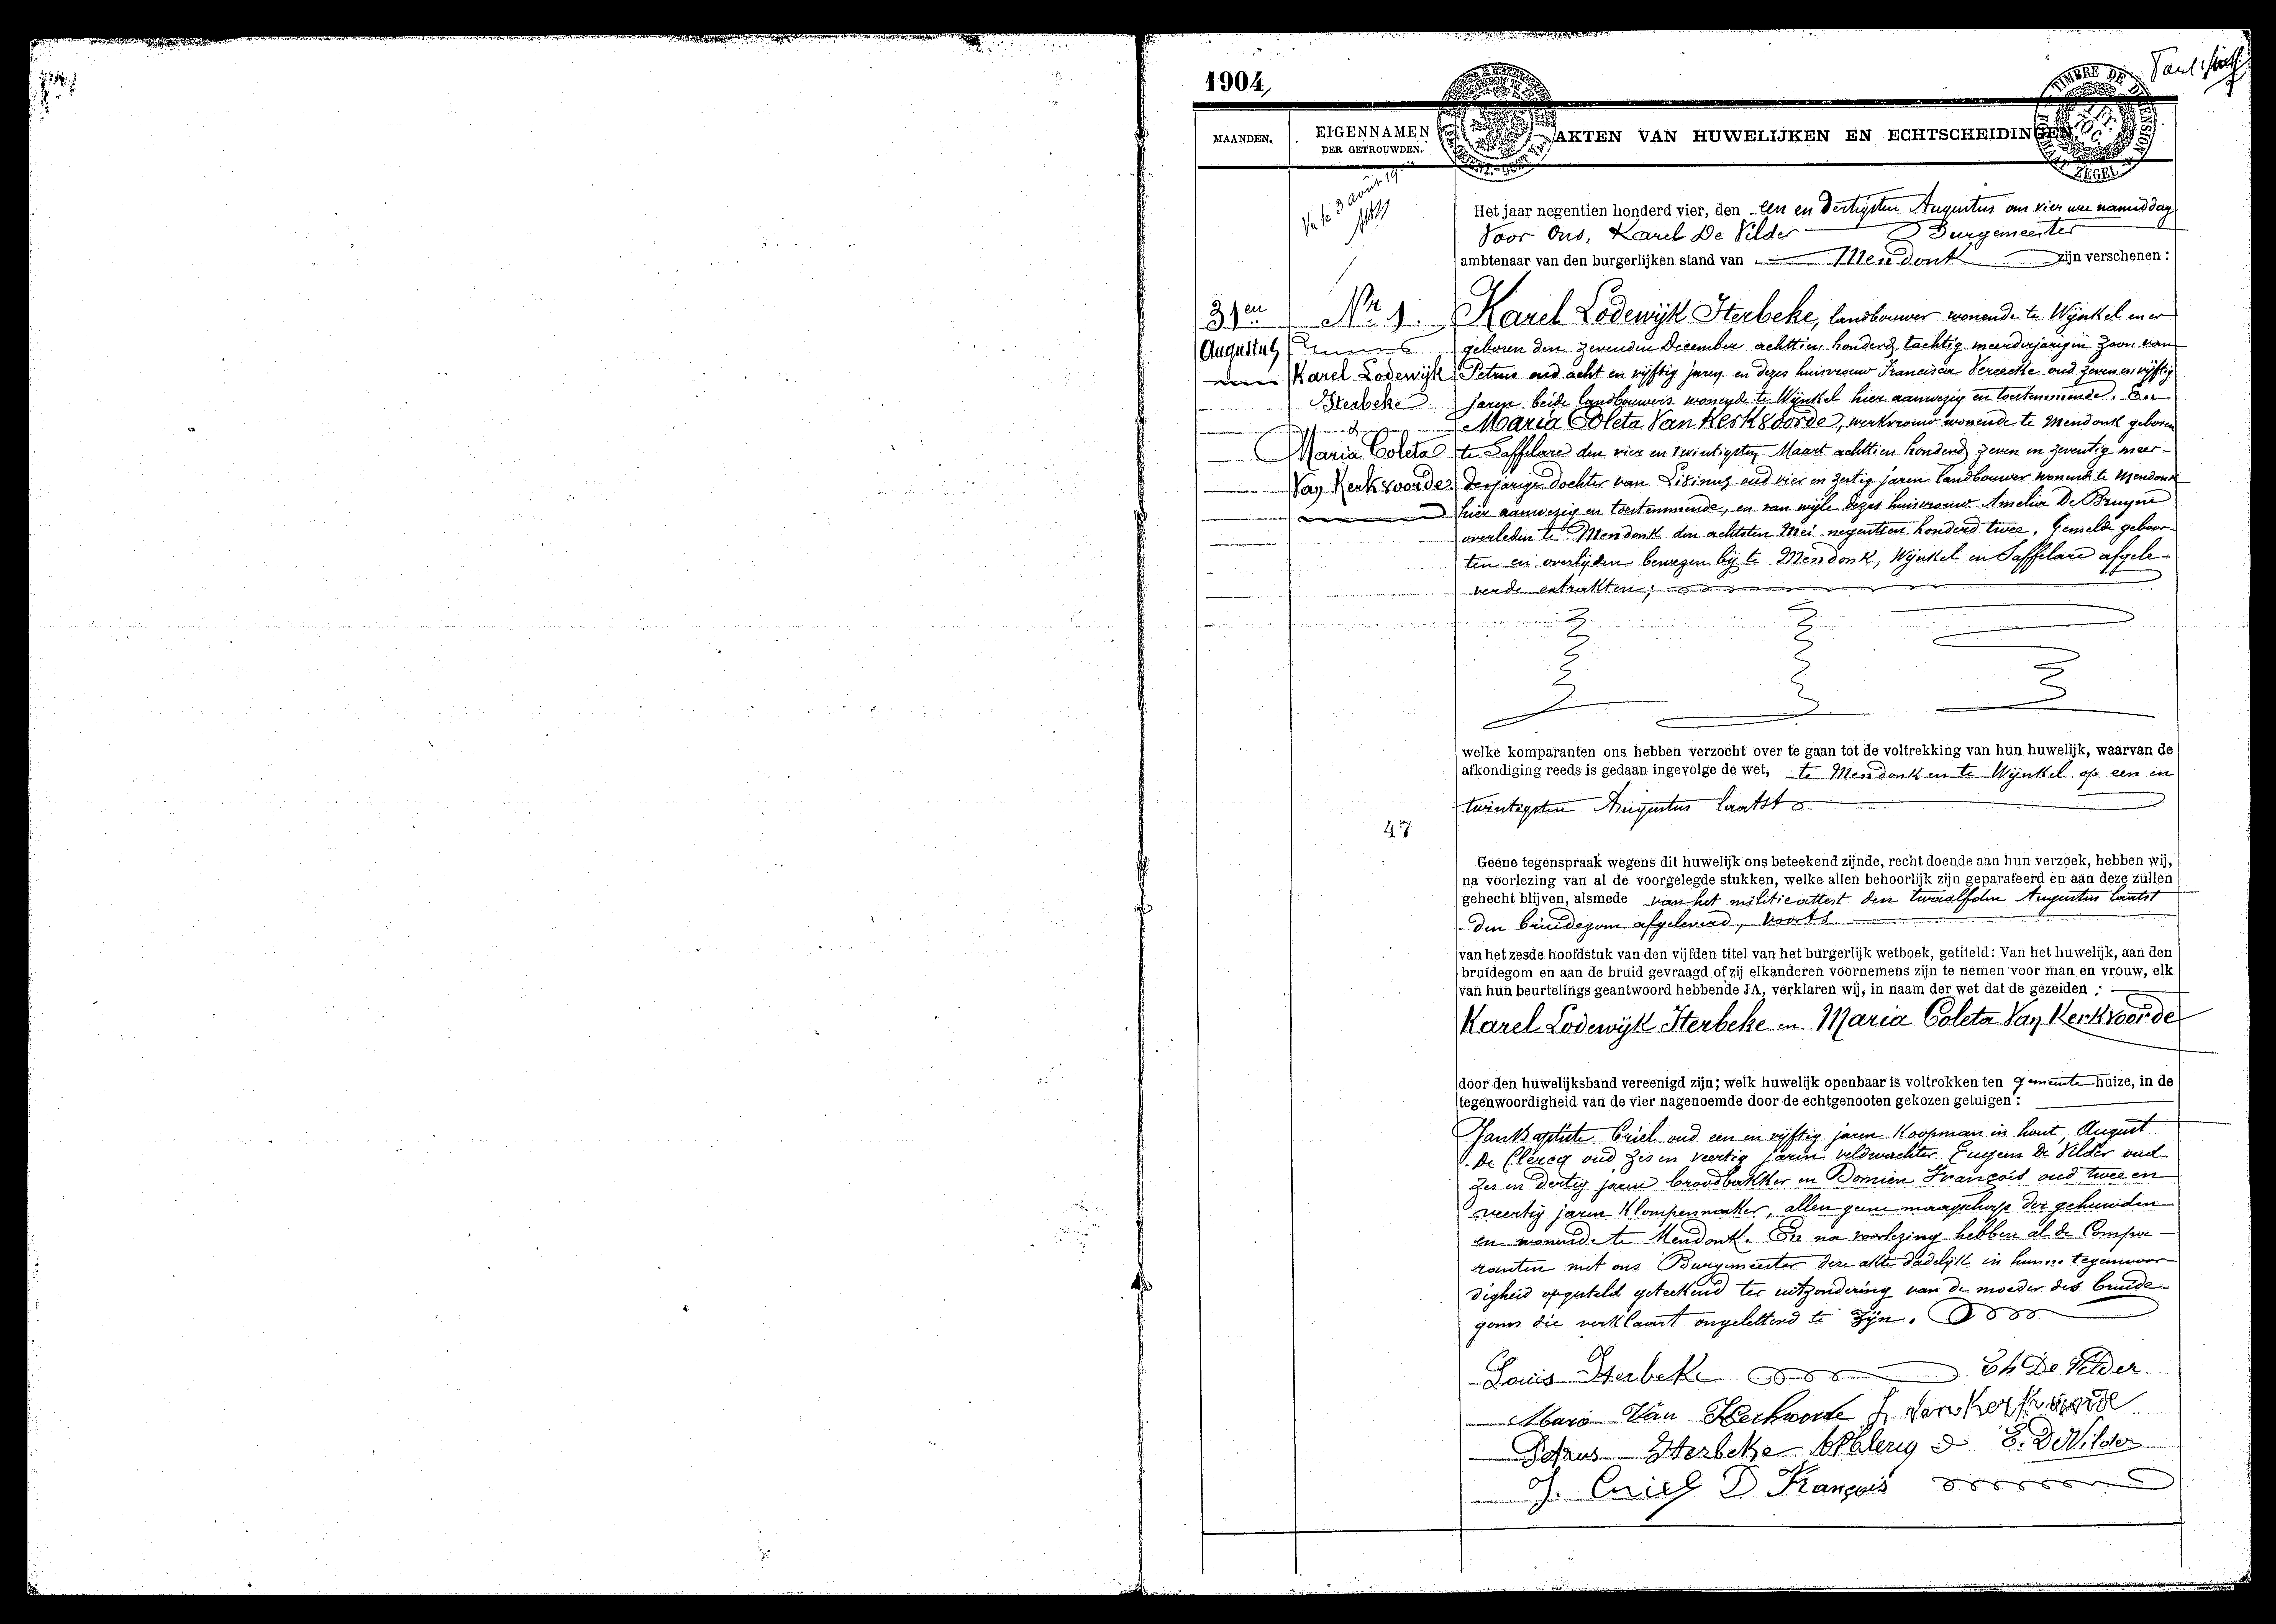 1904,
MAANDEN.
EIGENNAMEN
DER GETROUWDEN.
AKTEN VAN HUWELIJKEN EN ECHTSCHEIDINGEN.
TIMBRE DE DIMENSION
ZEGEL
Het jaar negentien honderd vier, den een en dertigsten Augustus om vier ure namiddag
Voor Ons, Karel De Vilder Burgemeester
ambtenaar van den burgerlijken stand van Mendonk zijn verschenen :
31en
Augustus
Nr 1.
Karel Lodewijk
Sterbeke
&
Maria Coleta
Van Kerkvoorde
Karel Lodewijk Sterbeke, landbouwer wonende te Wijnkel en er
geboren den zevenden December achttien honderd tachtig meerderjarigen zoon van
Petrus oud acht en vijftig jaren en dezes huisvrouw Francisca Vereecke oud zeven en vijftig
jaren beide landbouwers wonende te Wijnkel hier aanwezig en toestemmende. En
Maria Coleta Van Kerkvoorde, werkvrouw wonende te Mendonk geboren
te Saffelare den vier en twintigsten Maart achttien honderd zeven en zeventig meer-
derjarige dochter van Livinus oud vier en zestig jaren landbouwer wonende te Mendonk
hier aanwezig en toestemmende, en van wijle dezes huisvrouw Amelia De Bruyne
overleden te Mendonk den achtsten Mei negentien honderd twee. Gemelde geboor-
ten en overlijden bewezen bij te Mendonk, Wijnkel en Saffelare afgele-
verde extrakten ;
welke komparanten ons hebben verzocht over te gaan tot de voltrekking van hun huwelijk, waarvan de
afkondiging reeds is gedaan ingevolge de wet, te Mendonk en te Wijnkel op een en
twintigsten Augustus laatst
47
Geene tegenspraak wegens dit huwelijk ons beteekend zijnde, recht doende aan hun verzoek, hebben wij,
na voorlezing van al de voorgelegde stukken, welke allen behoorlijk zijn geparafeerd en aan deze zullen
gehecht blijven, alsmede van het militieattest den twaalfden Augustus laatst
den bruidegom afgeleverd, voorts
van het zesde hoofdstuk van den vijfden titel van het burgerlijk wetboek, getiteld: Van het huwelijk, aan den
bruidegom en aan de bruid gevraagd of zij elkanderen voornemens zijn te nemen voor man en vrouw, elk
van hun beurtelings geantwoord hebbende JA, verklaren wij, in naam der wet dat de gezeiden ;
Karel Lodewijk Sterbeke en Maria Coleta Van Kerkvoorde
door den huwelijksband vereenigd zijn; welk huwelijk openbaar is voltrokken ten gemeentehuize, in de
tegenwoordigheid van de vier nagenoemde door de echtgenooten gekozen getuigen :
Jan Baptiste Criel oud een en vijftig jaren Koopman in hout, August
De Clercq oud zes en veertig jaren veldwachter Eugeen De Vilder oud
zes en dertig jaren broodbakker en Domien François oud twee en
veertig jaren Klompenmaker, allen geene maagschap der gehuwden
en wonende te Mendonk. En na voorlezing hebben al de Compa-
ranten met ons Burgemeester deze akte dadelijk in hunne tegenwoor-
digheid opgesteld geteekend ter uitzondering van de moeder des bruide-
goms die verklaart ongeletterd te zijn.
Louis Sterbeke Ch De Vilder
Marie Van Kerkvoorde L Van Kerkvoorde
Petrus Sterbeke A De Clercq E. De Vilder
J. Criel D François